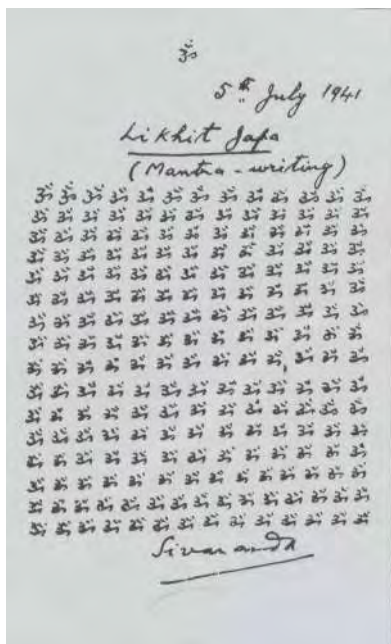 ॐ
5th July 1941
Likhit Japa
(Mantra - writing)
ॐ ॐ ॐ ॐ ॐ ॐ ॐ ॐ ॐ ॐ ॐ ॐ ॐ
ॐ ॐ ॐ ॐ ॐ ॐ ॐ ॐ ॐ ॐ ॐ ॐ ॐ
ॐ ॐ ॐ ॐ ॐ ॐ ॐ ॐ ॐ ॐ ॐ ॐ ॐ
ॐ ॐ ॐ ॐ ॐ ॐ ॐ ॐ ॐ ॐ ॐ ॐ ॐ
ॐ ॐ ॐ ॐ ॐ ॐ ॐ ॐ ॐ ॐ ॐ ॐ ॐ
ॐ ॐ ॐ ॐ ॐ ॐ ॐ ॐ ॐ ॐ ॐ ॐ ॐ
ॐ ॐ ॐ ॐ ॐ ॐ ॐ ॐ ॐ ॐ ॐ ॐ ॐ
ॐ ॐ ॐ ॐ ॐ ॐ ॐ ॐ ॐ ॐ ॐ ॐ ॐ
ॐ ॐ ॐ ॐ ॐ ॐ ॐ ॐ ॐ ॐ ॐ ॐ ॐ
ॐ ॐ ॐ ॐ ॐ ॐ ॐ ॐ ॐ ॐ ॐ ॐ ॐ
ॐ ॐ ॐ ॐ ॐ ॐ ॐ ॐ ॐ ॐ ॐ ॐ ॐ
ॐ ॐ ॐ ॐ ॐ ॐ ॐ ॐ ॐ ॐ ॐ ॐ ॐ
ॐ ॐ ॐ ॐ ॐ ॐ ॐ ॐ ॐ ॐ ॐ ॐ ॐ
ॐ ॐ ॐ ॐ ॐ ॐ ॐ ॐ ॐ ॐ ॐ ॐ ॐ
ॐ ॐ ॐ ॐ ॐ ॐ ॐ ॐ ॐ ॐ ॐ ॐ ॐ ॐ ॐ
ॐ ॐ ॐ ॐ ॐ ॐ ॐ ॐ ॐ ॐ ॐ ॐ ॐ ॐ
Sivananda